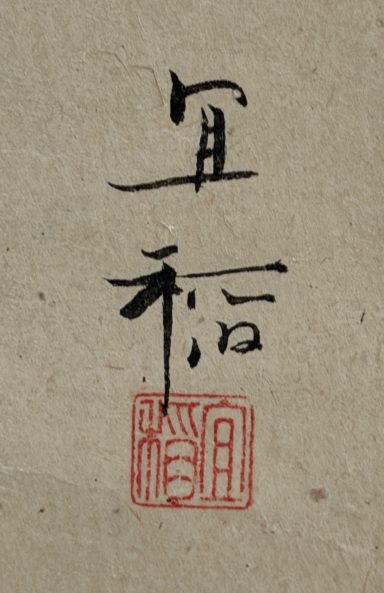 宜
稲
宜稲